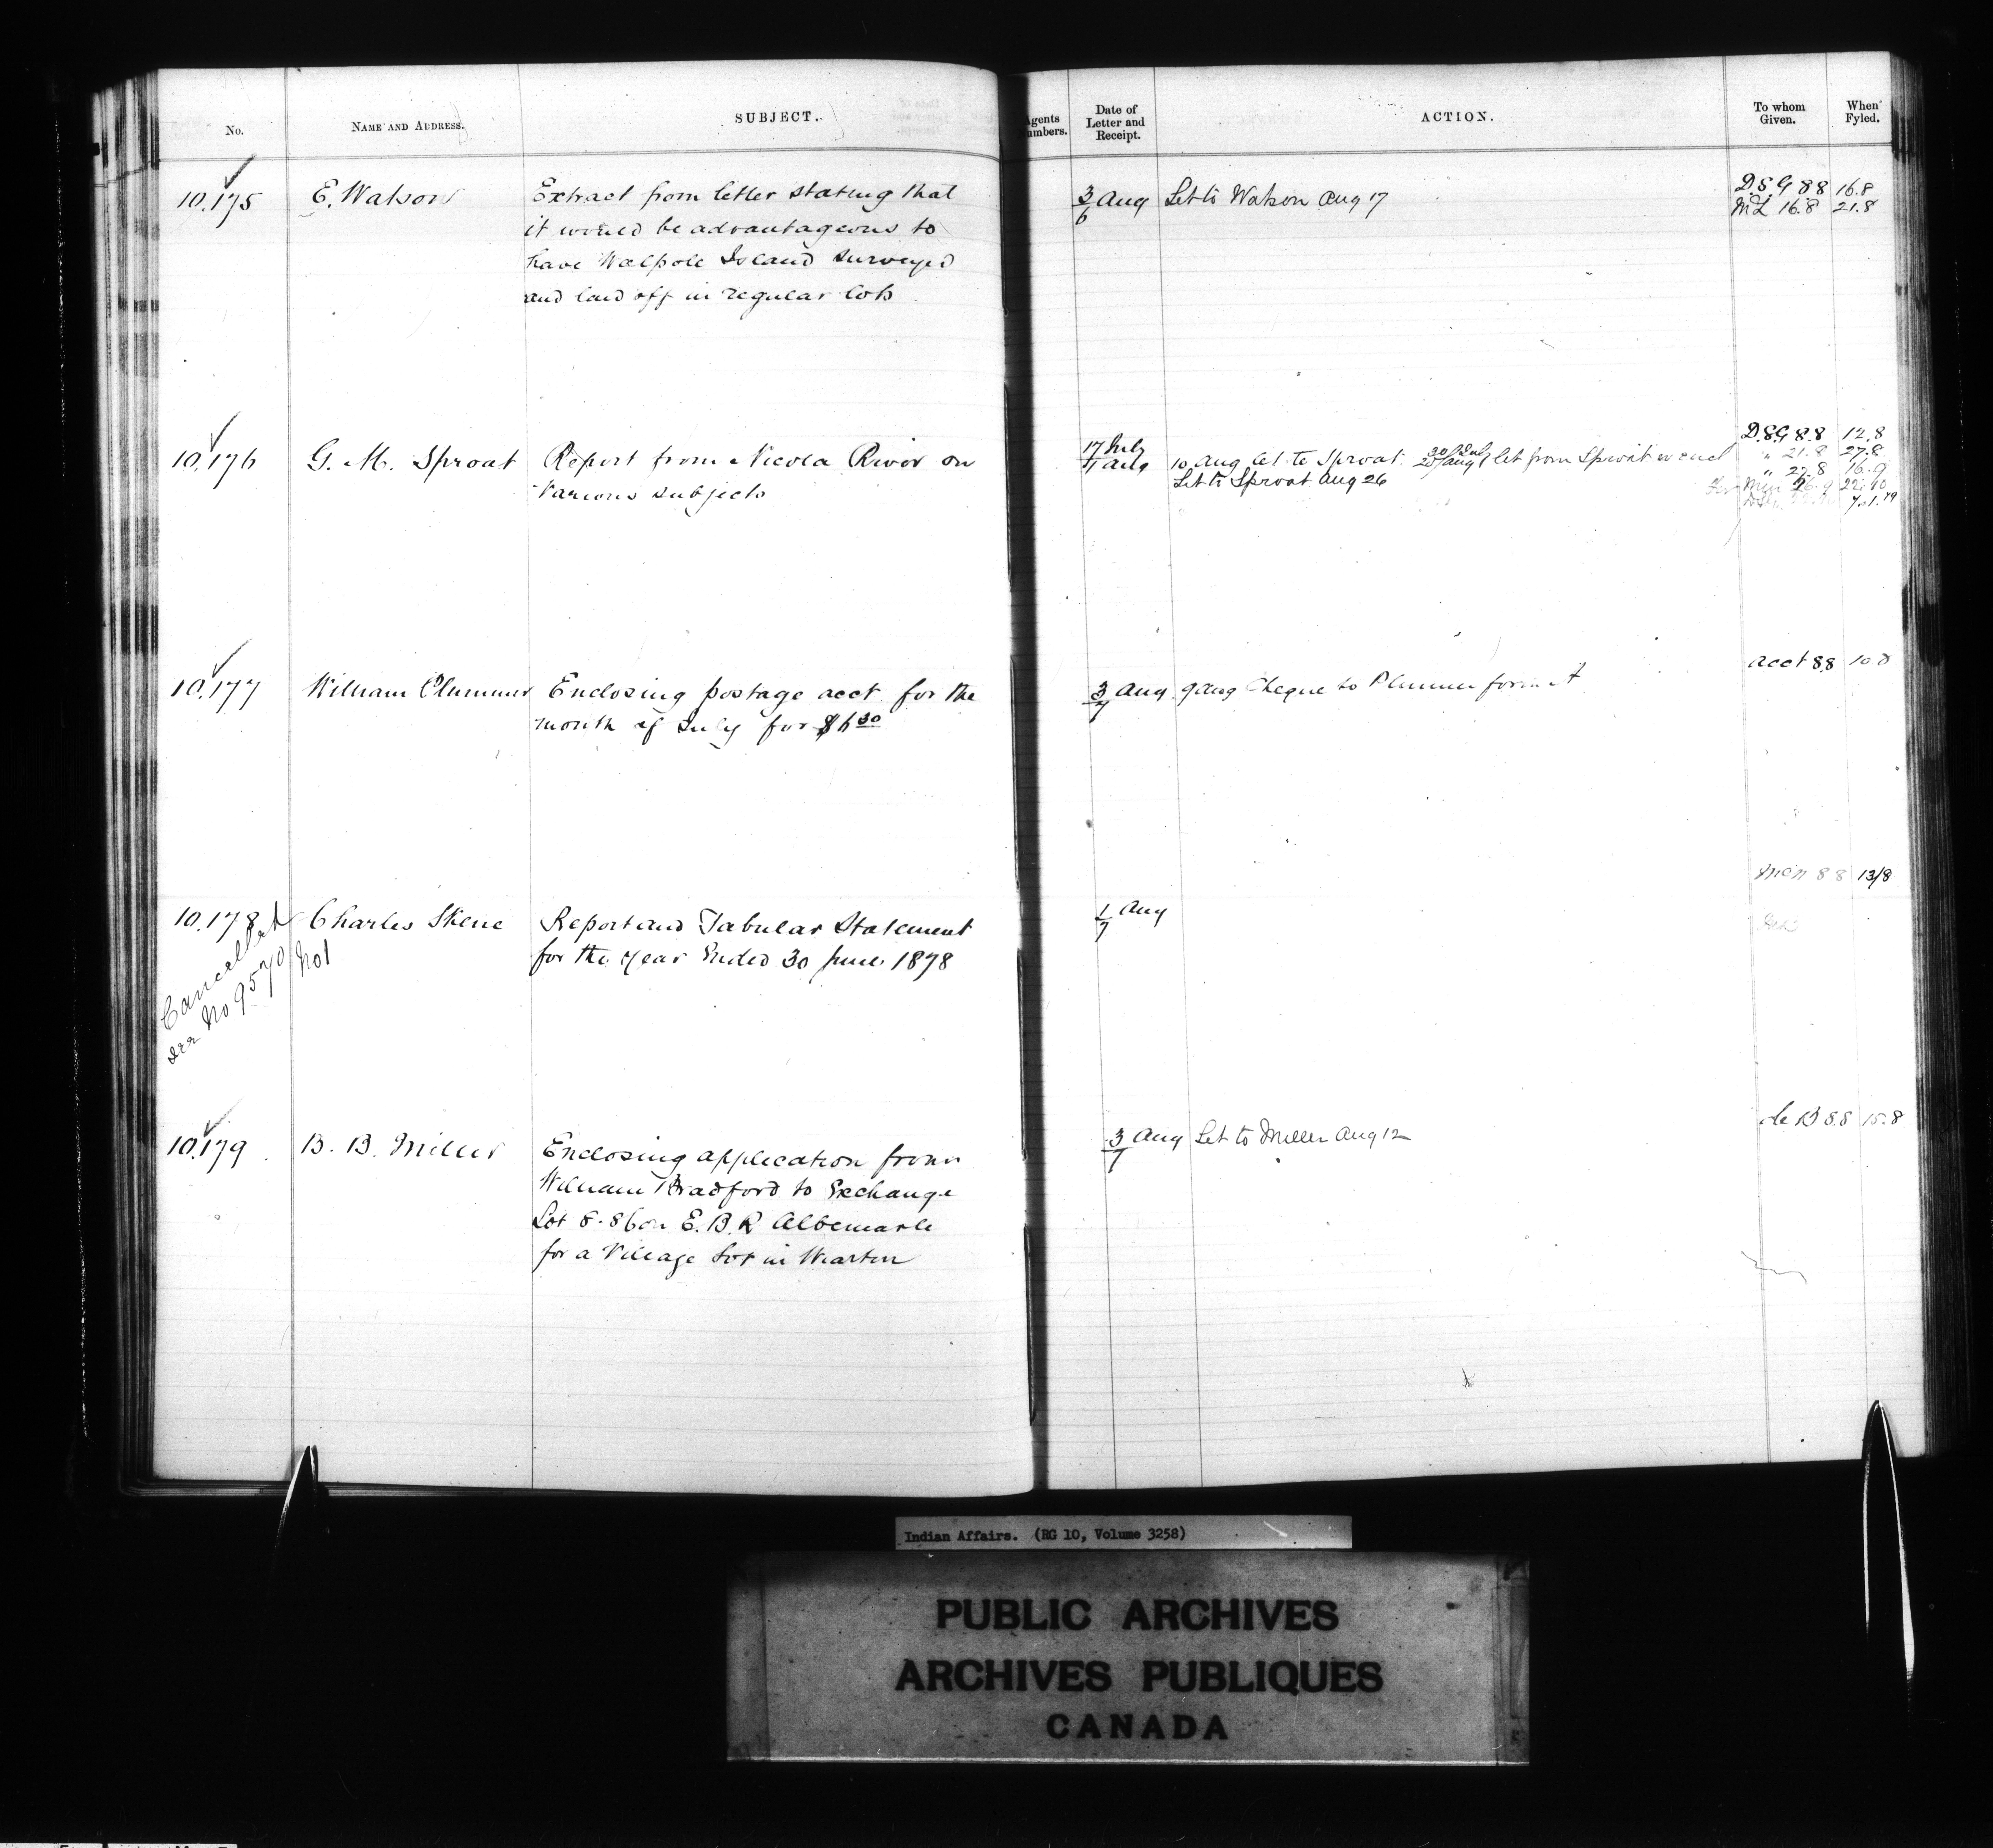 No.
NAME AND ADDRESS.
SUBJECT.
Agents Numbers.
Date of Letter and Receipt.
ACTION.
To whom Given.
When Fyled.
10.175
E. Watson
Extract from letter stating that
it would be advantageous to
have Walpole Island surveyed
and laid off in regular lots
3/6 Aug
Let to Watson Aug 17
D.S.G 8 8 16.8
ML 16.8 21.8
10.176
G. M. Sproat
Report from Nicola River on
Various subjects
17 July
7 Aug
10 Aug let to Sproat. let from Sproat
Let to Sproat Aug 26
D.S.G 8.8 12.8
" 21.8 27.8
" 27.8 16.9
22.10
10.177
William Plummer
Enclosing postage acct for the
month of July for $6 30
3/7 Aug
9 Aug Cheque to Plummer for
acct 8.8 10 8
10.178
Charles Skene
No 1
Report and Tabular Statement
for the year Ended 30 June 1878
Cancelled
see No 9570
1/7 Aug
Men 8 8 13/8
10.179
B. B. Miller
Enclosing application from
William Bradford to Exchange
Lot E.B.R Albemarle
for a Village Lot in Wiarton
3/7 Aug
Let to Miller Aug 12
de B 8.8 15.8
Indian Affairs. (RG 10, Volume 3258)
PUBLIC ARCHIVES
ARCHIVES PUBLIQUES
CANADA